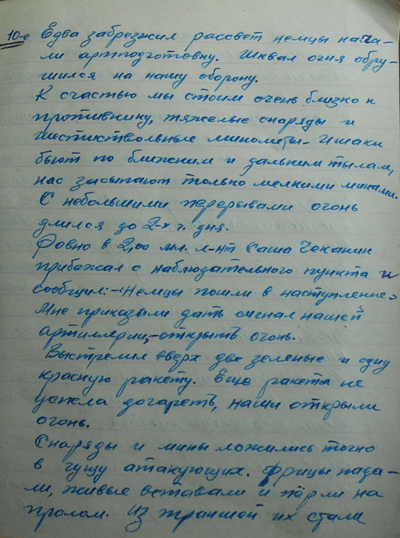 10-е Едва забрезжил рассвет немцы нача-
ли артподготовку. Шквал огня обру-
шился на нашу оборону.
К счастью мы стоим очень близко к
противнику, тяжелые снаряды и
шестиствольные минометы - ишаки
бьют по ближним и дальним тылам,
нас засыпают только мелкими минами.
С небольшими перерывами огонь
длился до 2-х ч. дня.
Ровно в 2,00 мл. л-нт Саша Чеканин
прибежал с наблюдательного пункта и
сообщил: - Немцы пошли в наступление.
Мне приказали дать сигнал нашей
артиллерии, - открыть огонь.
Выстрелил вверх две зеленые и одну
красную ракету. Еще ракета не
успела догореть, наши открыли
огонь.
Снаряды и мины ложились точно
в гущу атакующих. Фрицы пада-
ли, живые вставали и пёрли на
пролом. Из траншей их стали